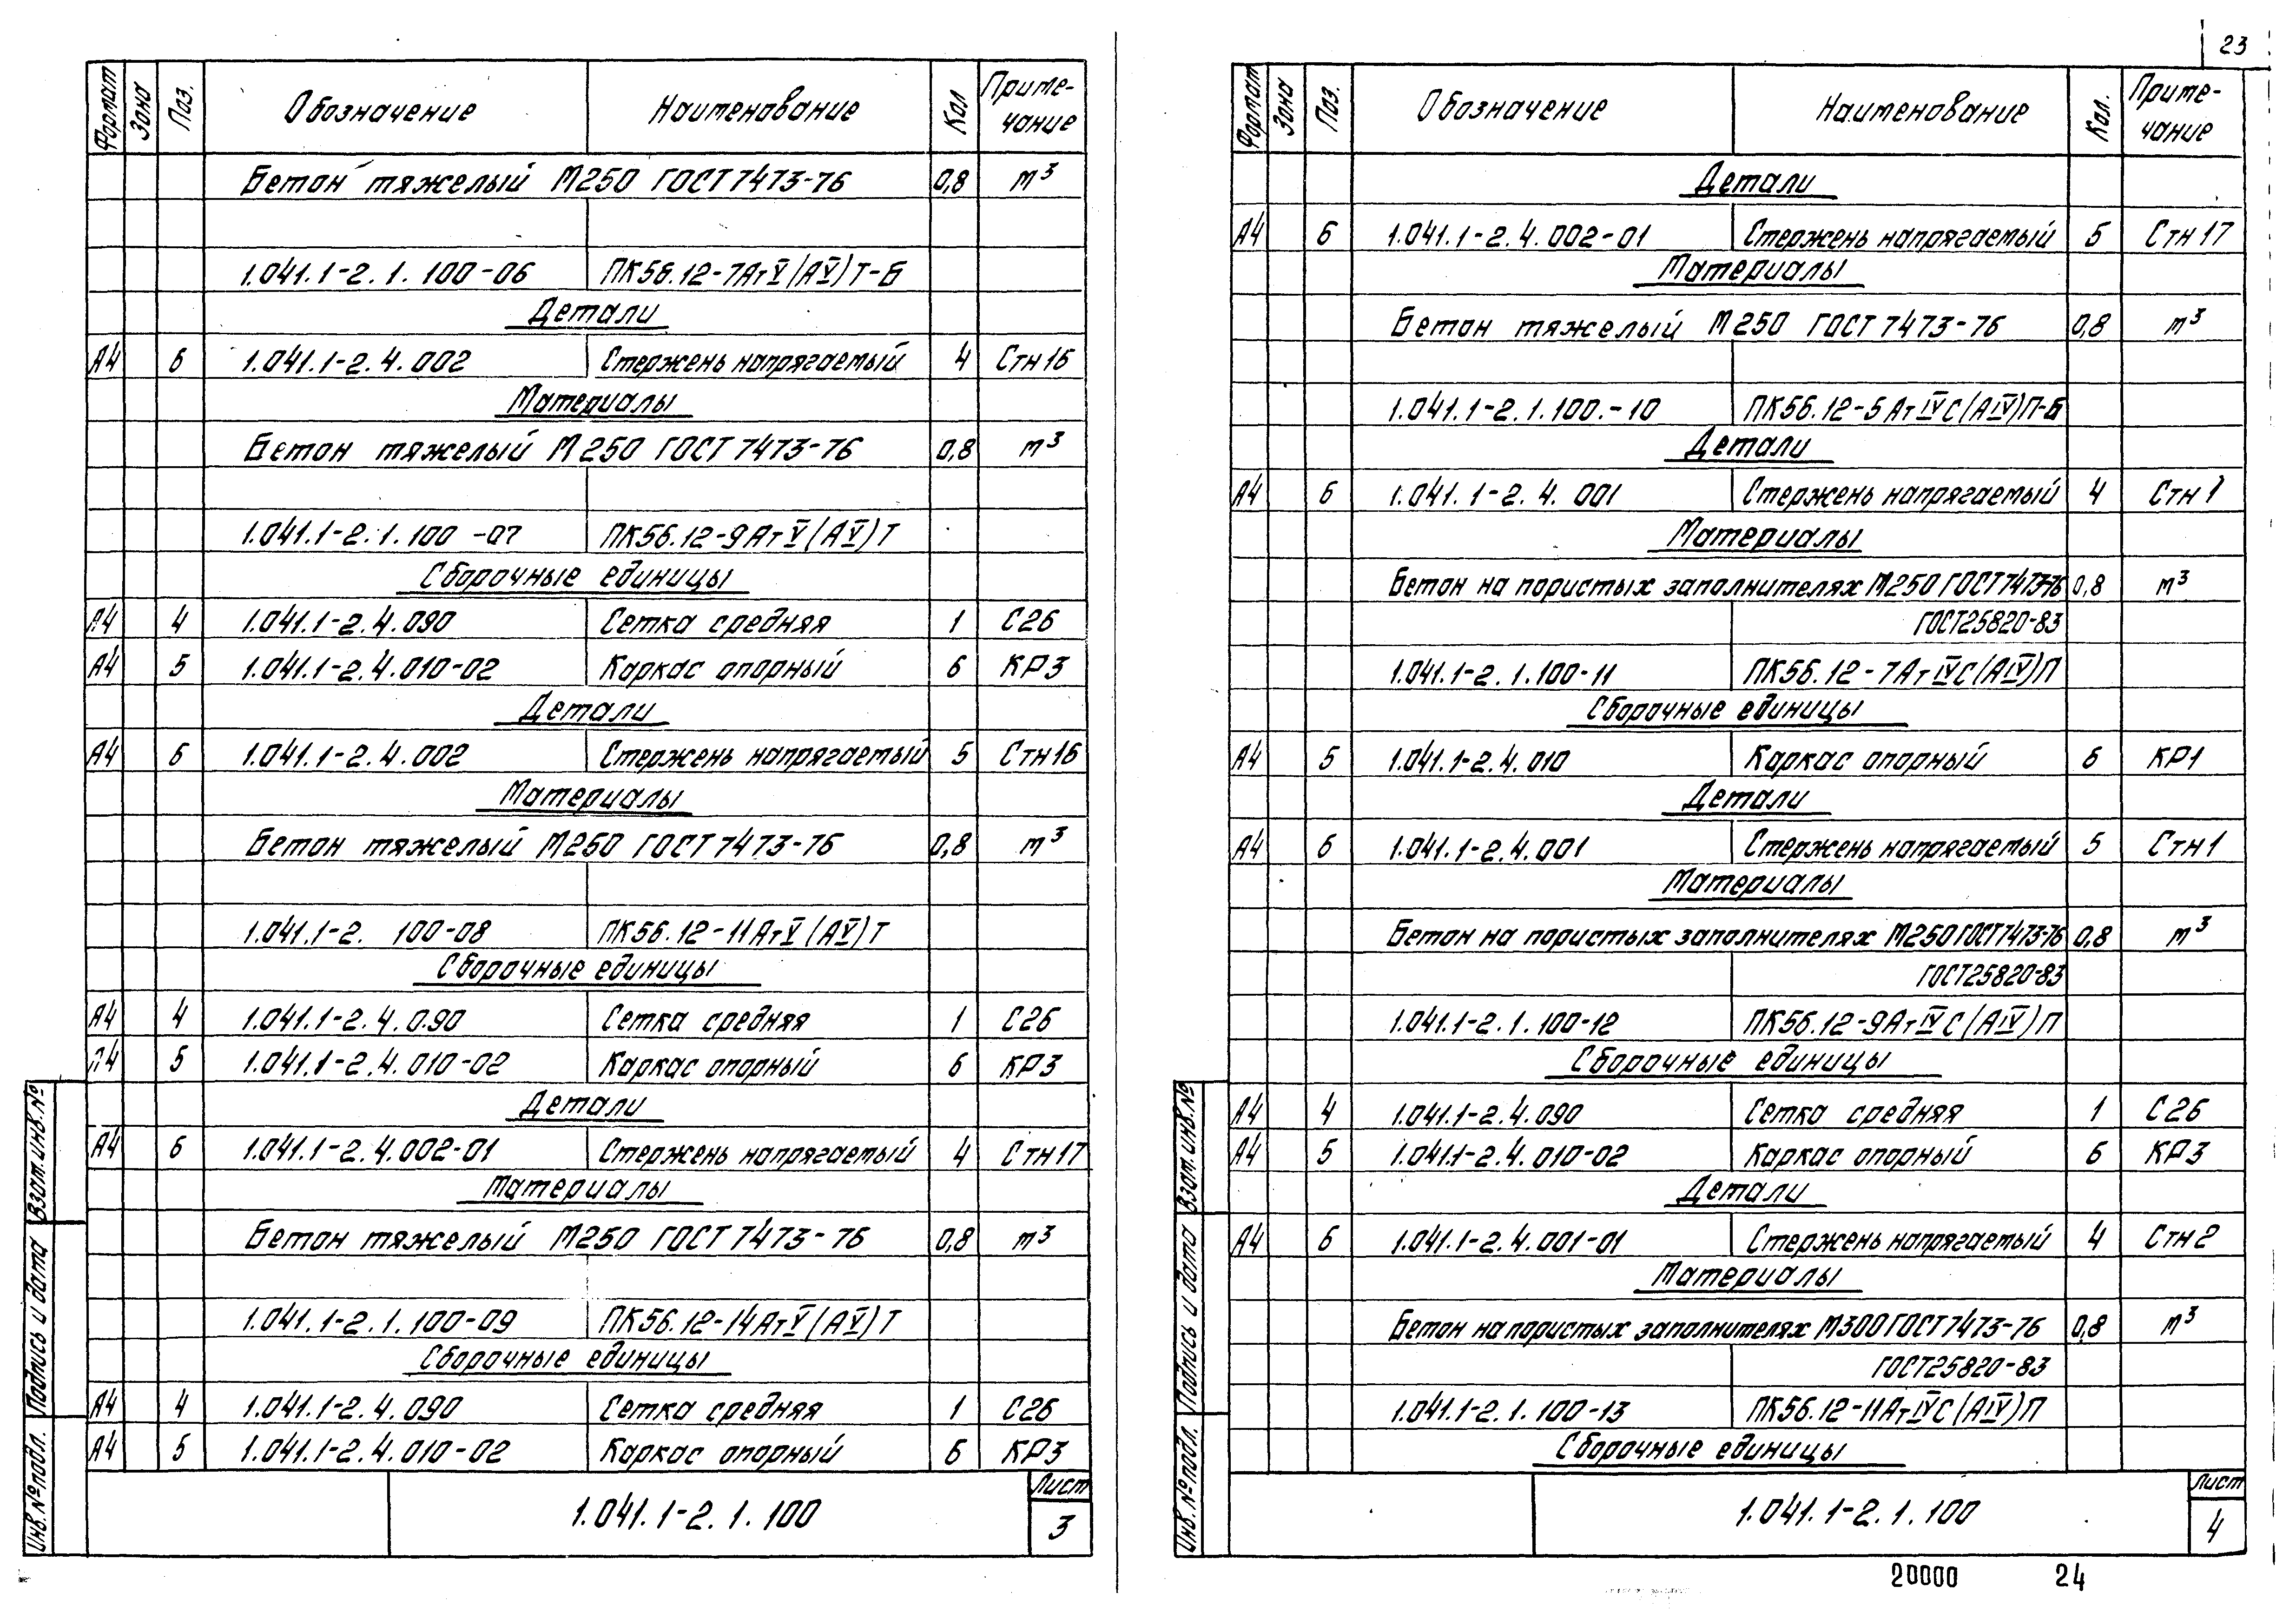 Формат Зона Поз. Обозначение Наименование Кол Приме-
чание
Бетон тяжелый М250 ГОСТ 7473-76 0,8 м³
1.041.1-2.1.100-06 ПК56.12-7АтV(АV)Т-Б
Детали
А4 6 1.041.1-2.4.002 Стержень напрягаемый 4 Стн16
Материалы
Бетон тяжелый М250 ГОСТ 7473-76 0,8 м³
1.041.1-2.1.100-07 ПК56.12-9АтV(АV)Т
Сборочные единицы
А4 4 1.041.1-2.4.090 Сетка средняя 1 С26
А4 5 1.041.1-2.4.010-02 Каркас опорный 6 КР3
Детали
А4 6 1.041.1-2.4.002 Стержень напрягаемый 5 Стн16
Материалы
Бетон тяжелый М250 ГОСТ 7473-76 0,8 м³
1.041.1-2. 100-08 ПК56.12-11АтV(АV)Т
Сборочные единицы
А4 4 1.041.1-2.4.090 Сетка средняя 1 С26
А4 5 1.041.1-2.4.010-02 Каркас опорный 6 КР3
Детали
А4 6 1.041.1-2.4.002-01 Стержень напрягаемый 4 Стн17
Материалы
Бетон тяжелый М250 ГОСТ 7473-76 0,8 м³
1.041.1-2.1.100-09 ПК56.12-14АтV(АV)Т
Сборочные единицы
А4 4 1.041.1-2.4.090 Сетка средняя 1 С26
А4 5 1.041.1-2.4.010-02 Каркас опорный 6 КР3
Инв.№подл. Подпись и дата Взам.инв.№
1.041.1-2.1.100
Лист
3
23
Формат Зона Поз. Обозначение Наименование Кол. Приме-
чание
Детали
А4 6 1.041.1-2.4.002-01 Стержень напрягаемый 5 Стн17
Материалы
Бетон тяжелый М250 ГОСТ 7473-76 0,8 м³
1.041.1-2.1.100.-10 ПК56.12-5АтIVС(АIV)П-Б
Детали
А4 6 1.041.1-2.4.001 Стержень напрягаемый 4 Стн1
Материалы
Бетон на пористых заполнителях М250 ГОСТ7473-76 0,8 м³
ГОСТ25820-83
1.041.1-2.1.100-11 ПК56.12-7АтIVС(АIV)П
Сборочные единицы
А4 5 1.041.1-2.4.010 Каркас опорный 6 КР1
Детали
А4 6 1.041.1-2.4.001 Стержень напрягаемый 5 Стн1
Материалы
Бетон на пористых заполнителях М250 ГОСТ7473-76 0,8 м³
ГОСТ25820-83
1.041.1-2.1.100-12 ПК56.12-9АтIVС(АIV)П
Сборочные единицы
А4 4 1.041.1-2.4.090 Сетка средняя 1 С26
А4 5 1.041.1-2.4.010-02 Каркас опорный 6 КР3
Детали
А4 6 1.041.1-2.4.001-01 Стержень напрягаемый 4 Стн2
Материалы
Бетон на пористых заполнителях М300 ГОСТ7473-76 0,8 м³
ГОСТ25820-83
1.041.1-2.1.100-13 ПК56.12-11АтIVС(АIV)П
Сборочные единицы
Инв.№подл. Подпись и дата Взам.инв.№
1.041.1-2.1.100
Лист
4
20000 24